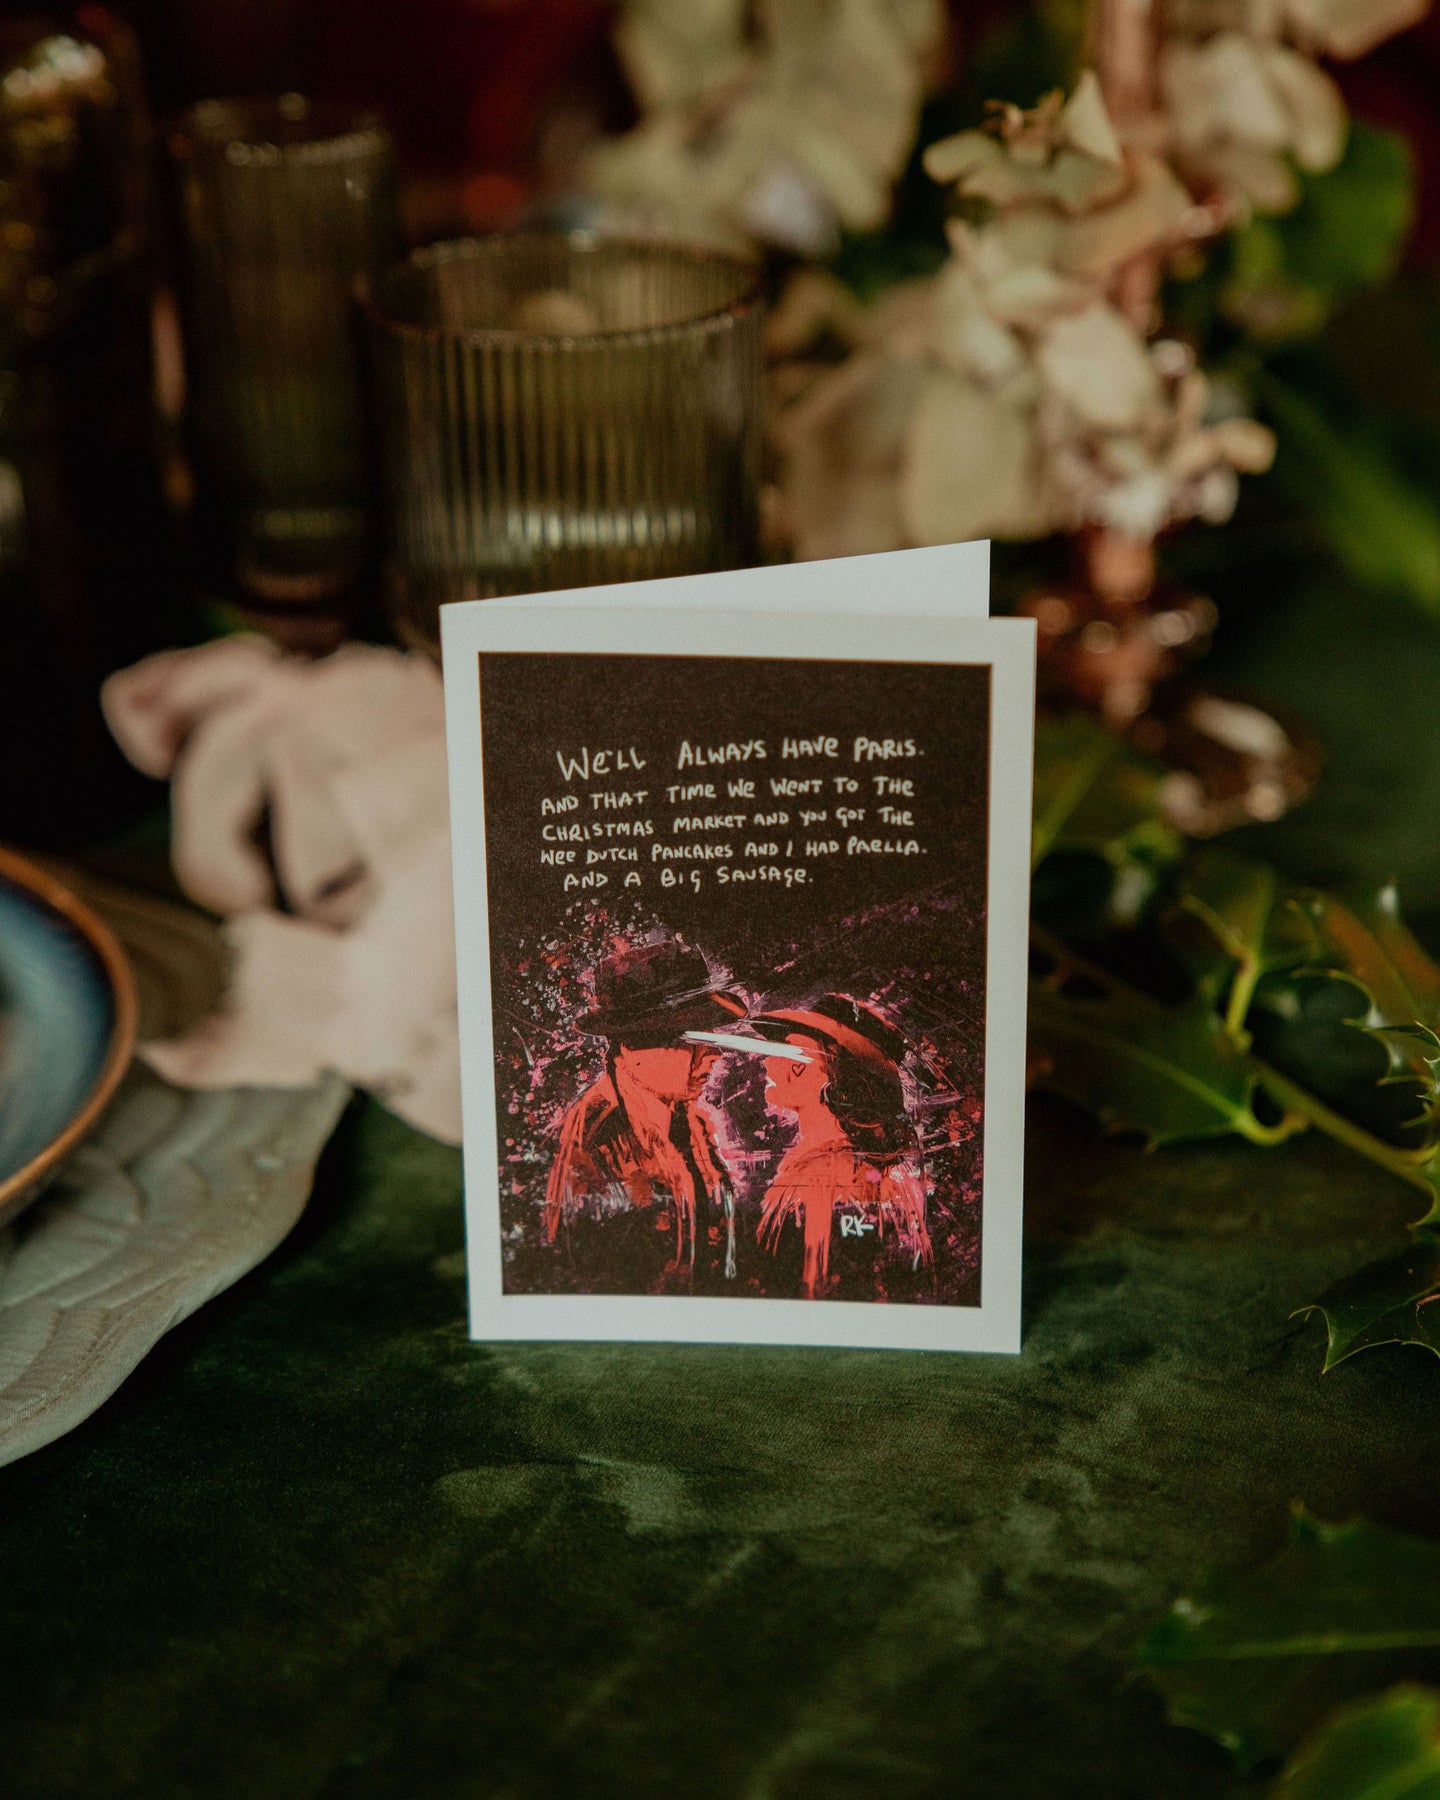 We'll ALWAYS HAVE PARIS.
AND THAT TIME We WENT TO THE
CHRISTMAS MARKET AND YOU GOT THE
Wee DUTCH PANCAKES AND I HAD PAELLA.
AND A BIG SAUSAGE.
RK